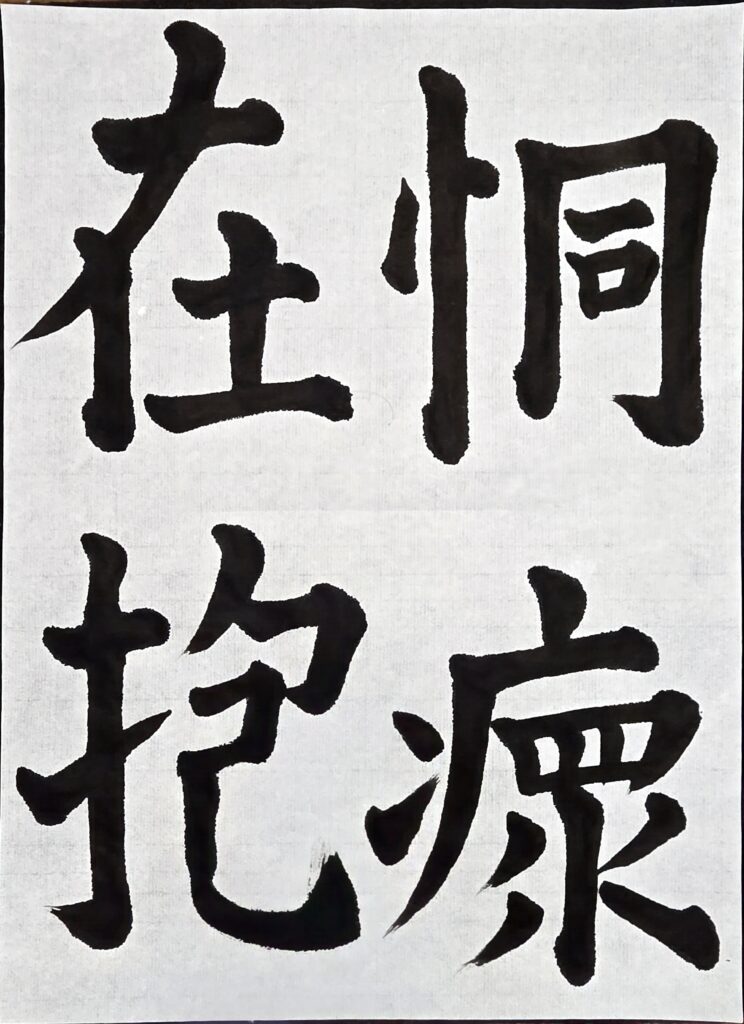 恫瘝
在抱